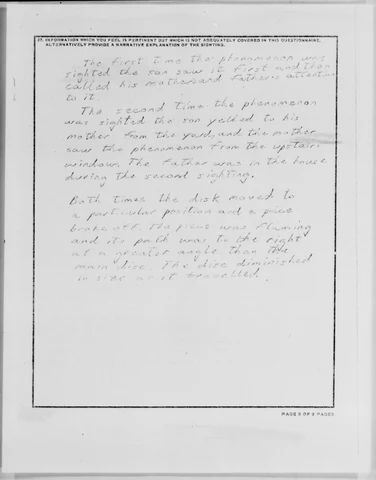 27. INFORMATION WHICH YOU FEEL IS PERTINENT BUT WHICH IS NOT ADEQUATELY COVERED IN THIS QUESTIONNAIRE.
ALTERNATIVELY PROVIDE A NARRATIVE EXPLANATION OF THE SIGHTING.
The first time the phenomenon was
sighted the son saw it first and then
called his mother and fathers attention
to it.
The second time the phenomenon
was sighted the son yelled to his
mother from the yard, and the mother
saw the phenomenon from the upstairs
window. The father was in the house
during the second sighting.
Both times the disk moved to
a particular position and a piece
broke off. The piece was flaming
and its path was to the right
at a greater angle than the
main disc. The disc diminished
in size as it travelled.
PAGE 8 OF 8 PAGES